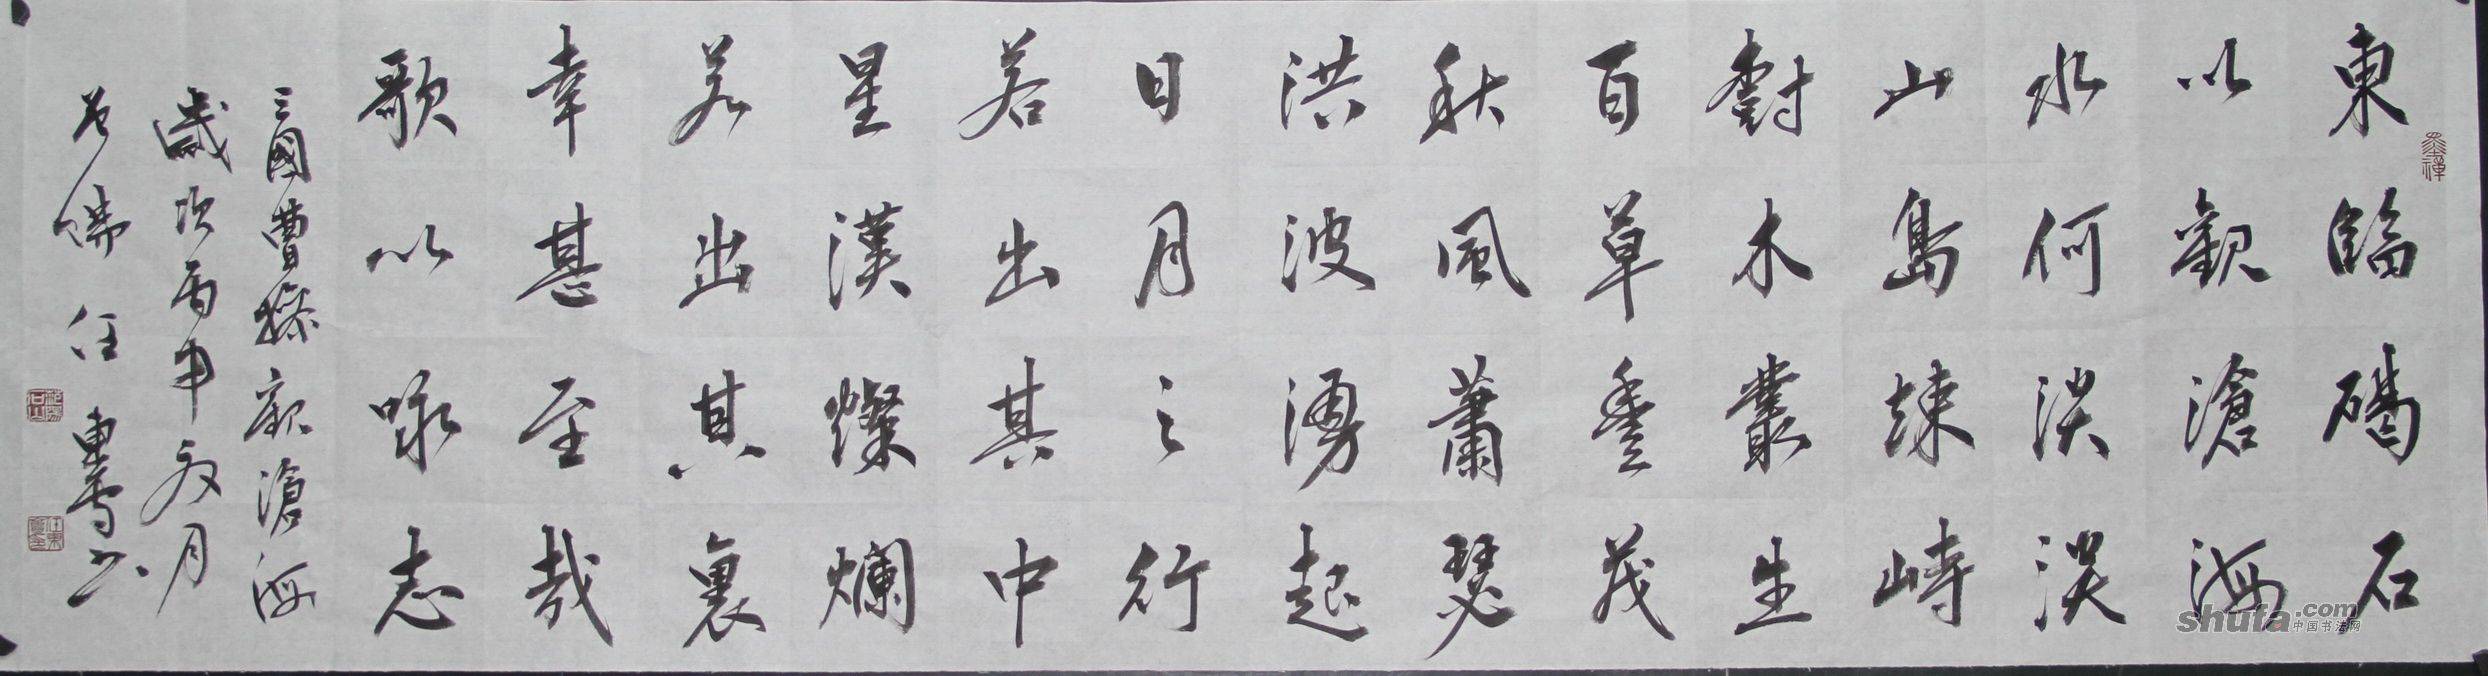 墨禪
東臨碣石
以觀滄海
水何淡淡
山島竦峙
樹木叢生
百草豐茂
秋風蕭瑟
洪波湧起
日月之行
若出其中
星漢燦爛
若出其裏
幸甚至哉
歌以咏志
三國曹操觀滄海
歲次丙申夏月
佛任東書
shufa.com
中国书法网